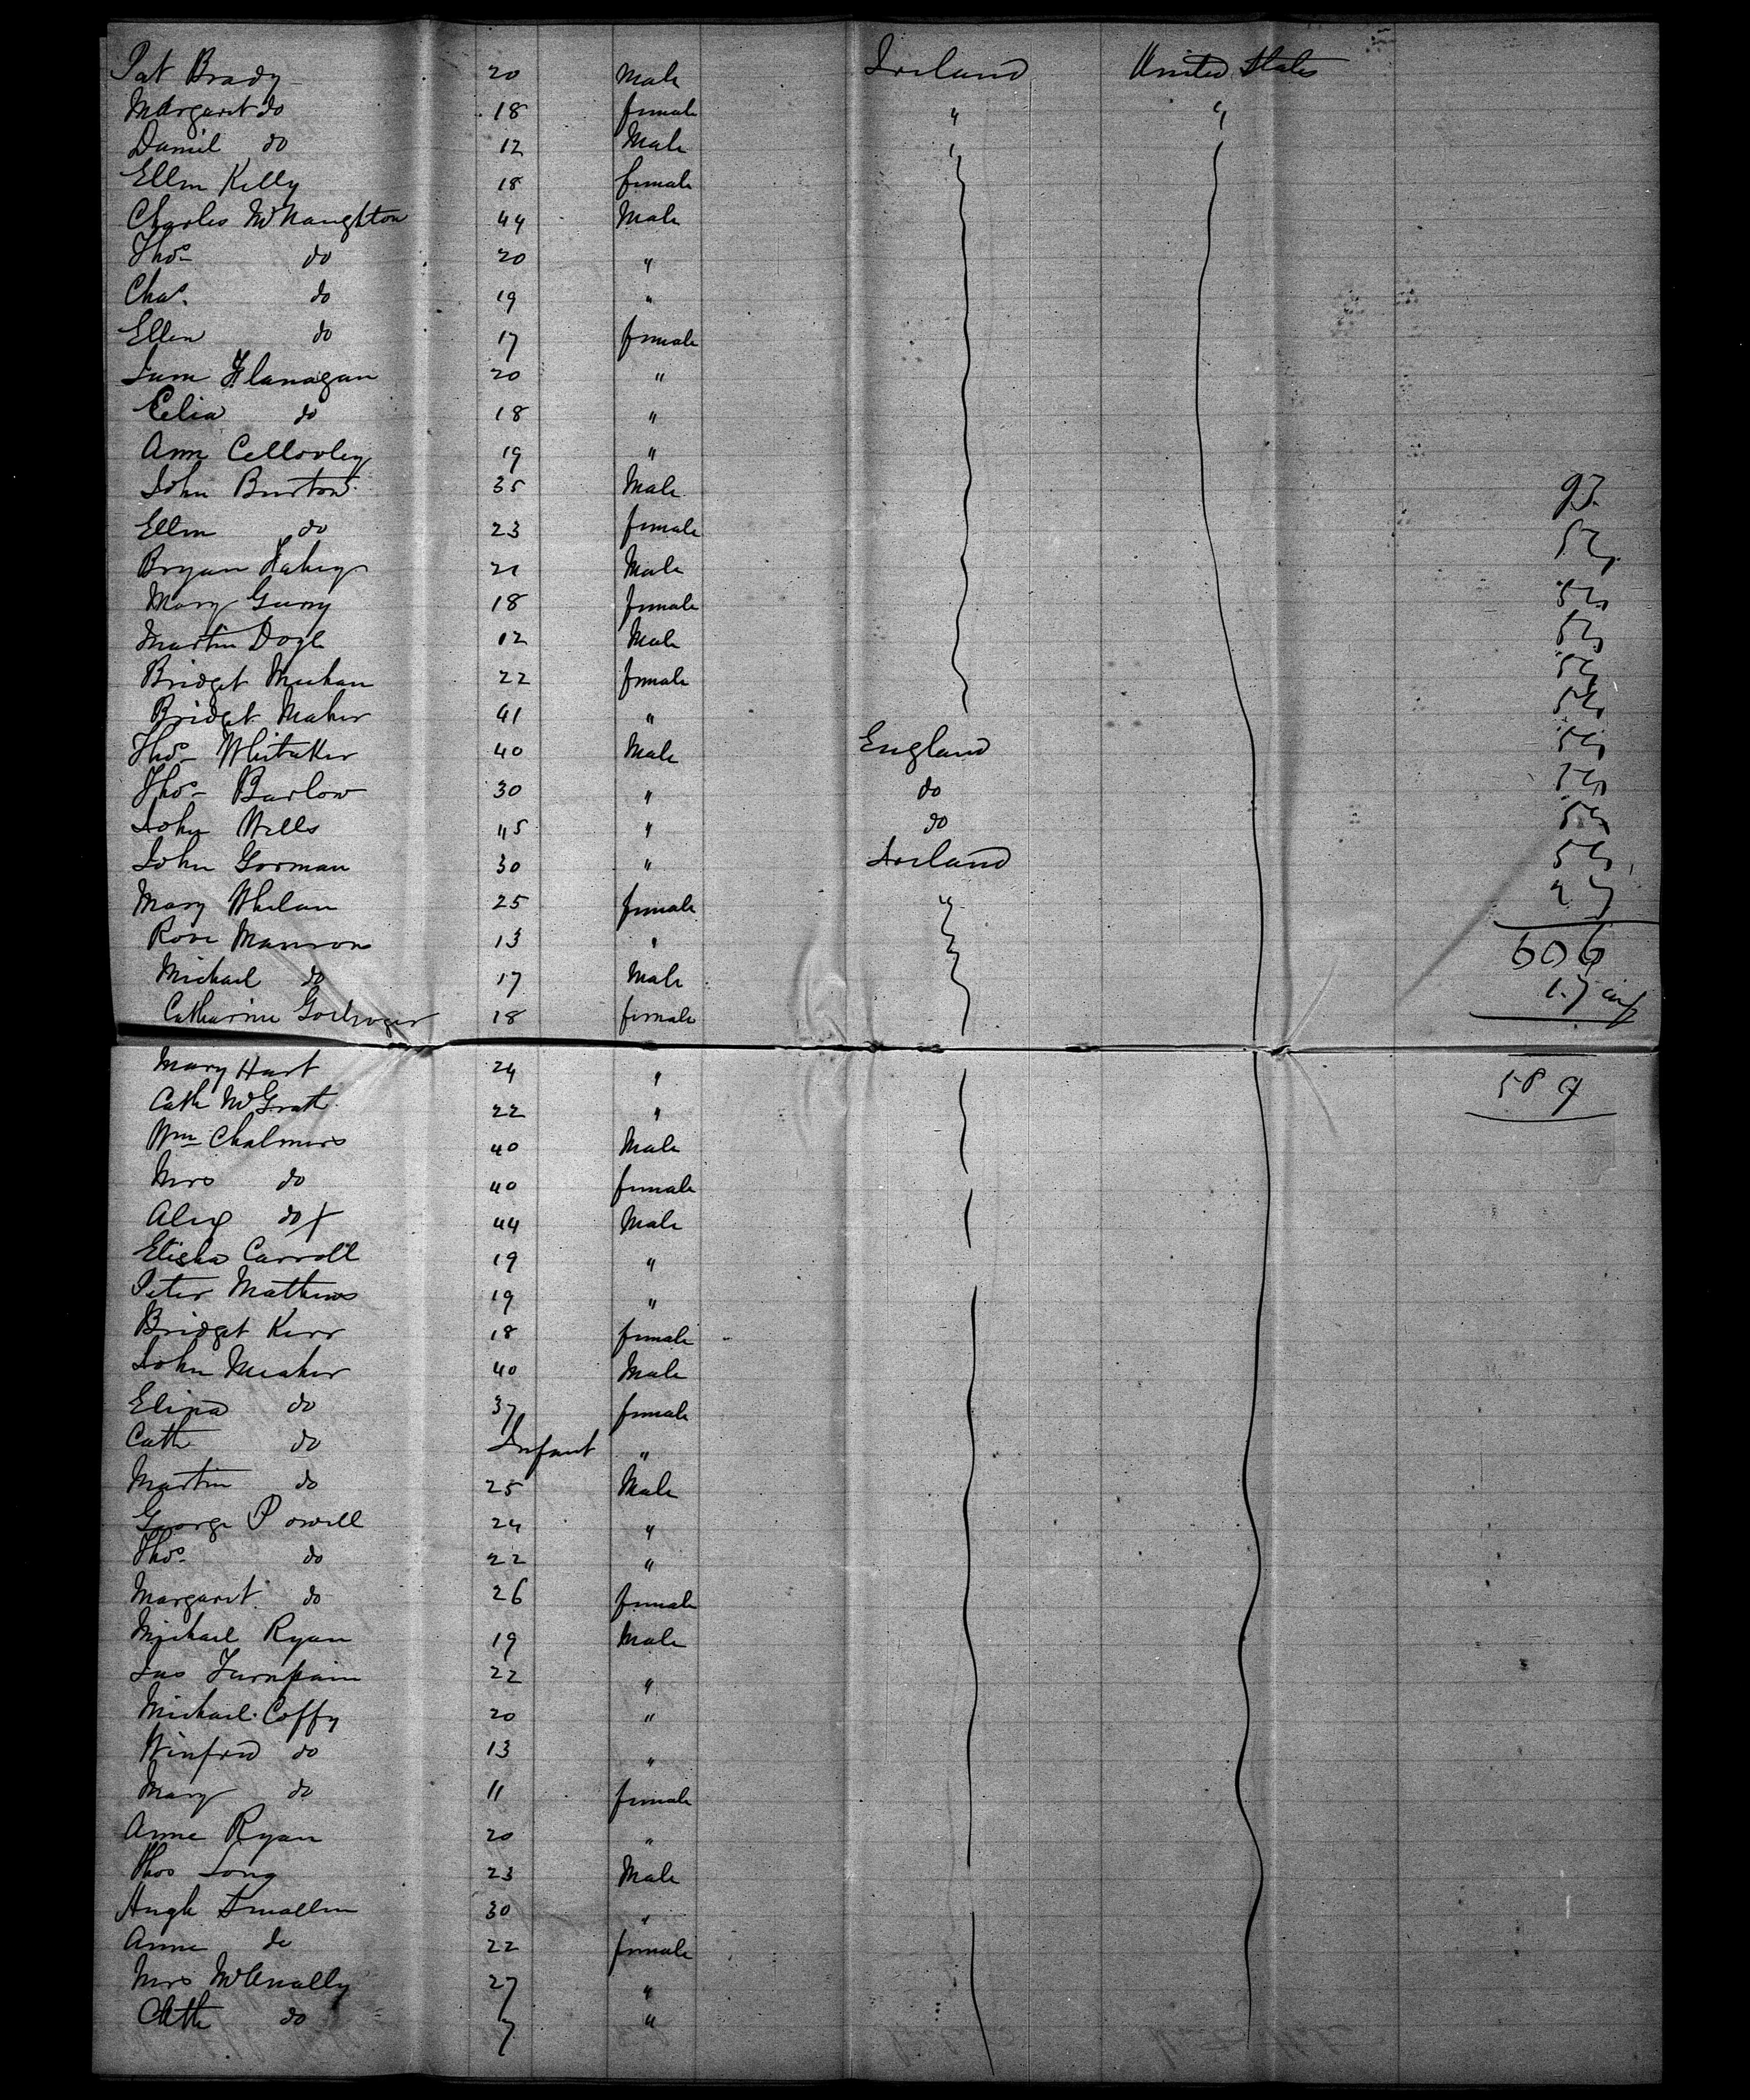 Pat Brady 20 Male Ireland United States
Margaret do 18 female " "
Daniel do 12 Male "
Ellen Kelly 18 female
Charles McNaughton 44 Male
Thos do 20 "
Chas. do 19 "
Ellen do 17 female
Jane Flanagan 20 "
Celia do 18 "
Ann 19 "
John Burton 35 Male 93
Ellen do 23 female
Bryan Fahey 21 Male
Mary 18 female
Martin Doyle 12 Male
Bridget Meehan 22 female
Bridget Maher 41 "
Thos Whitaker 40 Male England
Thos Barlow 30 " do
John Wells 45 " do
John Gorman 30 " Ireland
Mary Whelan 25 female "
Rose 13 " 606
Michael do 17 Male 17 inf
Catharine 18 female
Mary Hart 24 " 589
Cath McGrath 22 "
Wm Chalmers 40 Male
Mrs do 40 female
Alex do 44 Male
Elisha Carroll 19 "
Peter Mathews 19 "
Bridget Kerr 18 female
John Meaher 40 Male
Eliza do 37 female
Cath do Infant "
Martin do 25 Male
George Powell 24 "
Thos. do 22 "
Margaret do 26 female
Michael Ryan 19 Male
Jas Turnpain 22 "
Michael Coffy 20 "
Winfred do 13 "
Mary do 11 female
Anne Ryan 20 "
Thos Long 23 Male
Hugh Smallen 30 "
Anne do 22 female
Mrs McAnally 27 "
Cath do 7 "